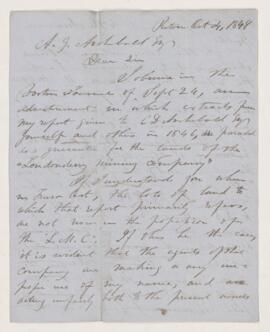 Pictou Oct 4, 1848
A. G. Archibald Esq
Dear Sir
I observe in the
Boston Journal of Sept 26, an
advertisement in which extracts from
my report given to C D Archibald Esq
yourself and others in 1846, is paraded
as a guarantee for the lands of the
"Londonderry Mining Company"
If I understood you when
in Truro last, the lots of land to
which that report primarily refers,
are not now in the possession of
the L. M. C. If this be the case,
it is evident that the agents of the
company are making a very im-
proper use of my name, and are
acting unfairly both to the present owners